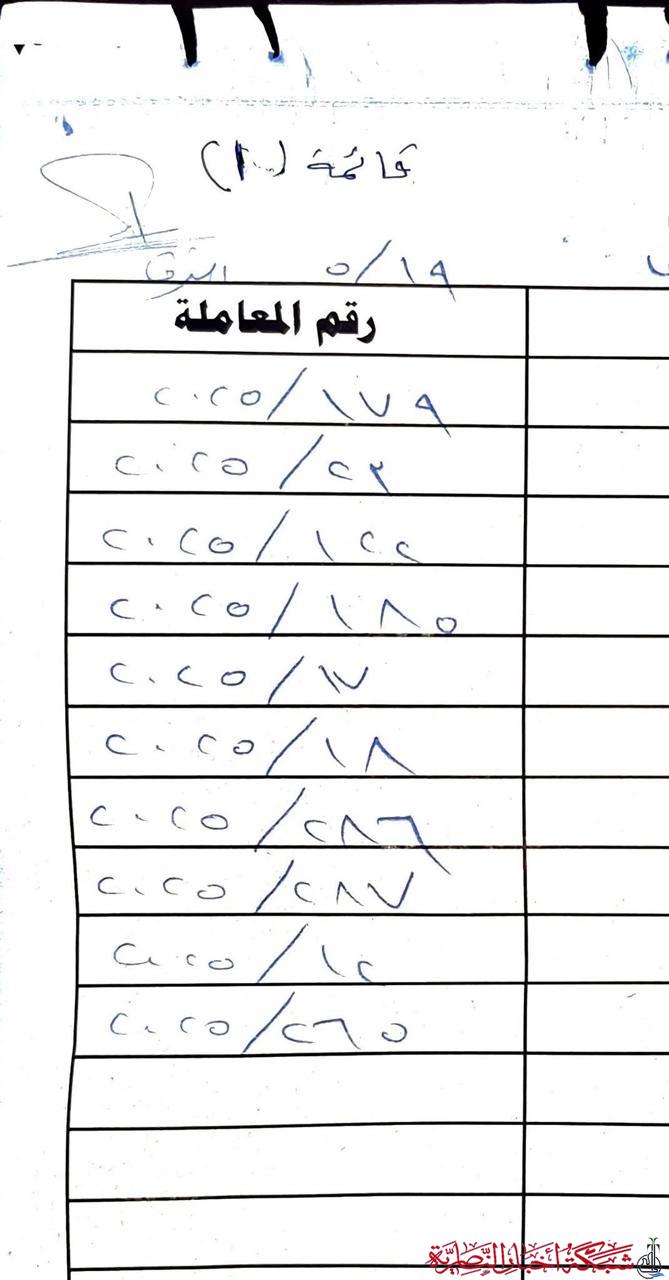 قائمة (١٠)
٥/١٩
رقم المعاملة
٢٠٢٥/١٧٩
٢٠٢٥/٢٣
٢٠٢٥/١٢٢
٢٠٢٥/١٨٥
٢٠٢٥/١٧
٢٠٢٥/١٨
٢٠٢٥/٢٨٦
٢٠٢٥/٢٨٧
٢٠٢٥/١٢
٢٠٢٥/٢٦٥
شبكة أخبار الناصرية